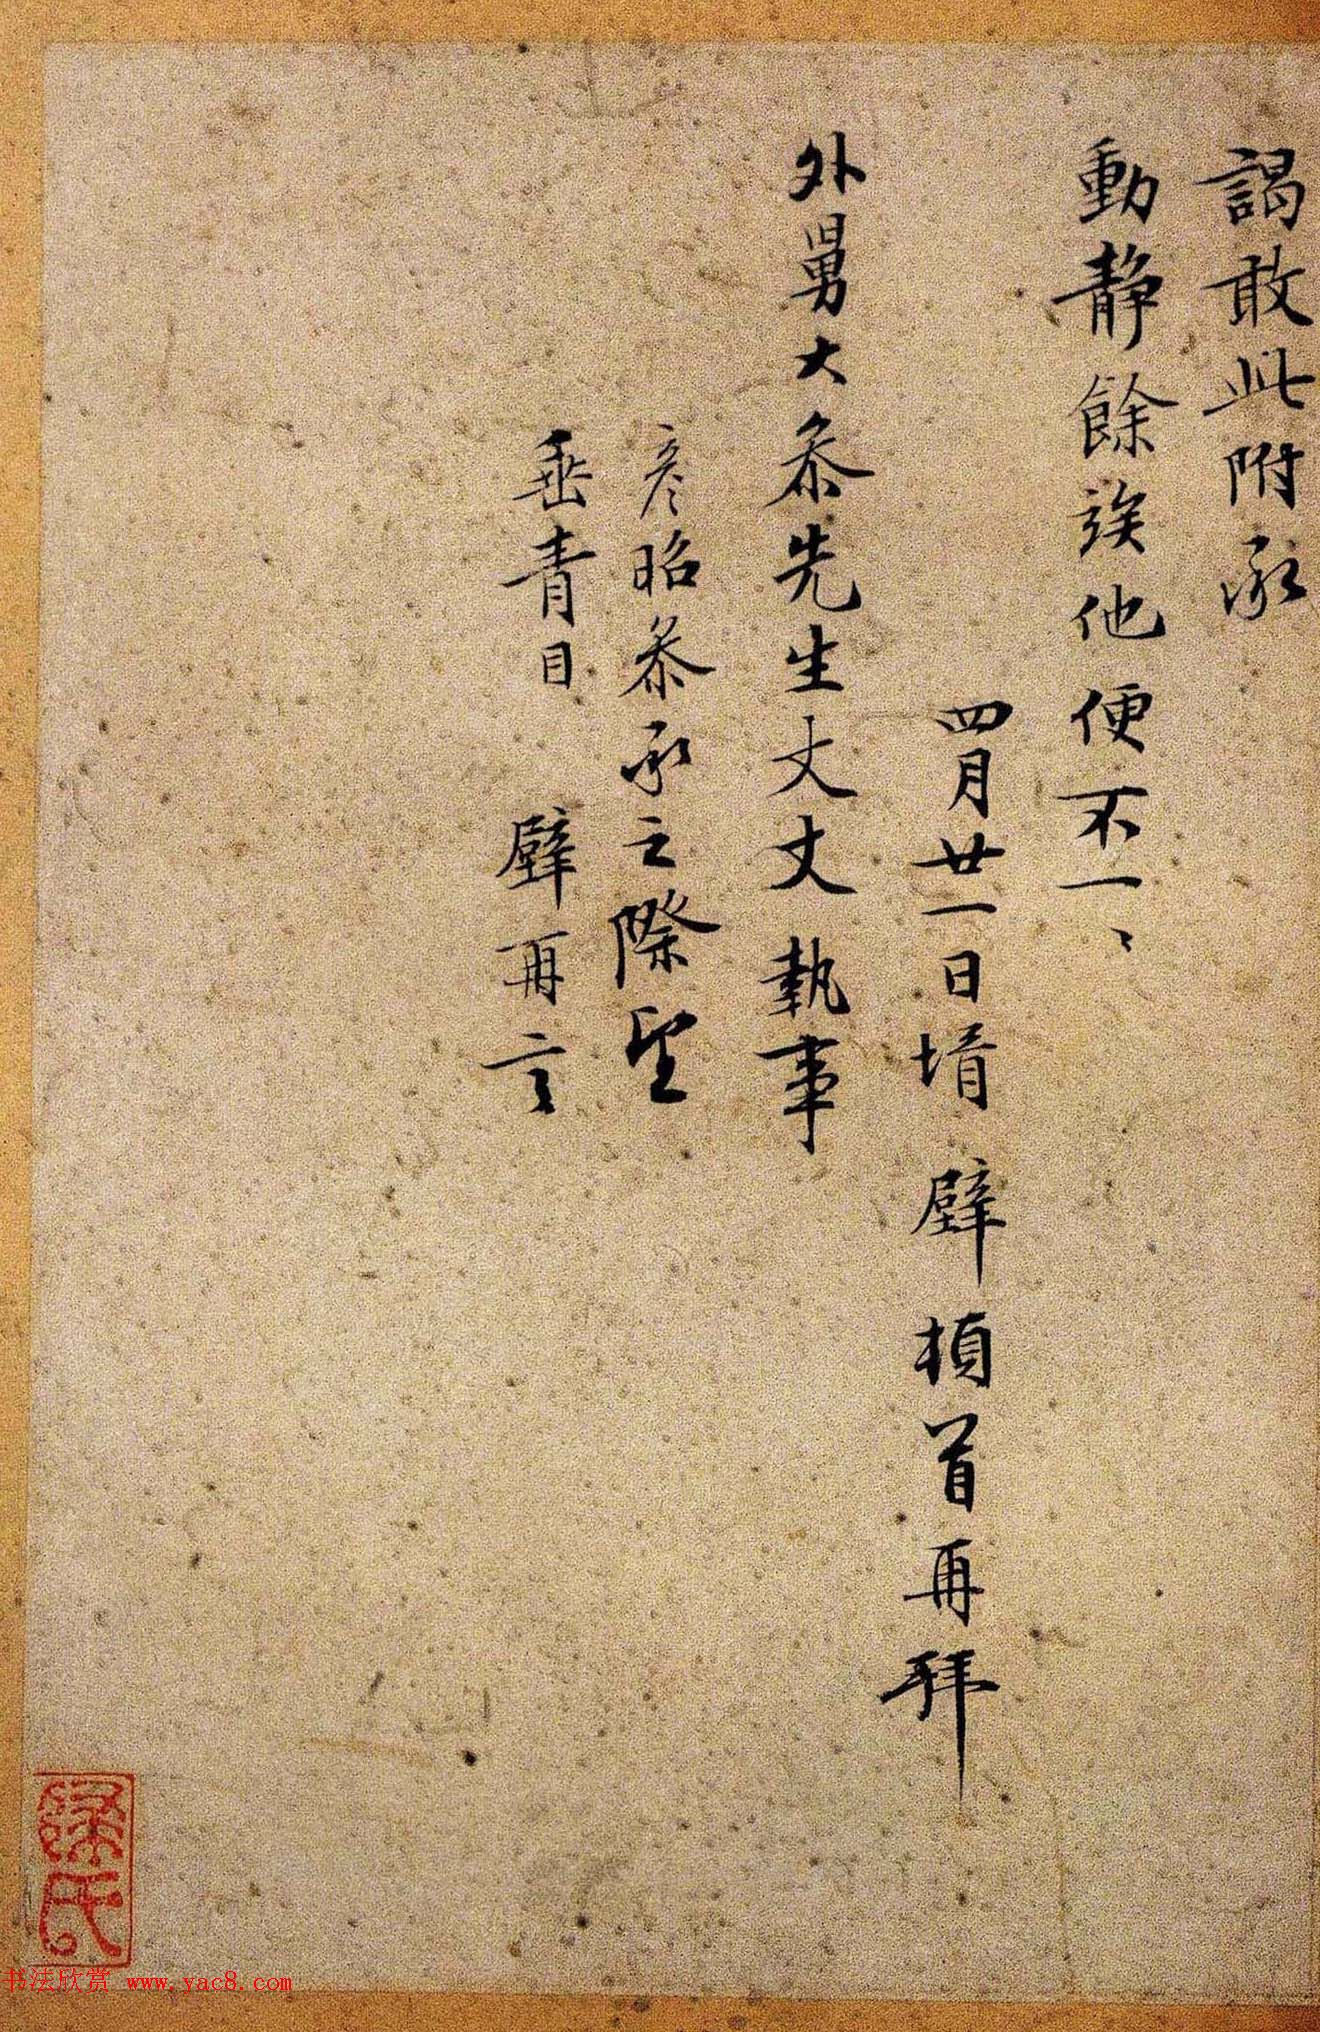 謁敢此附承
動静餘竢他便不一、
四月廿一日壻 壁 頓首再拜
外舅大叅先生丈丈執事
彦昭叅承之際望
垂青目 壁再言
徐氏
书法欣赏 www.yac8.com